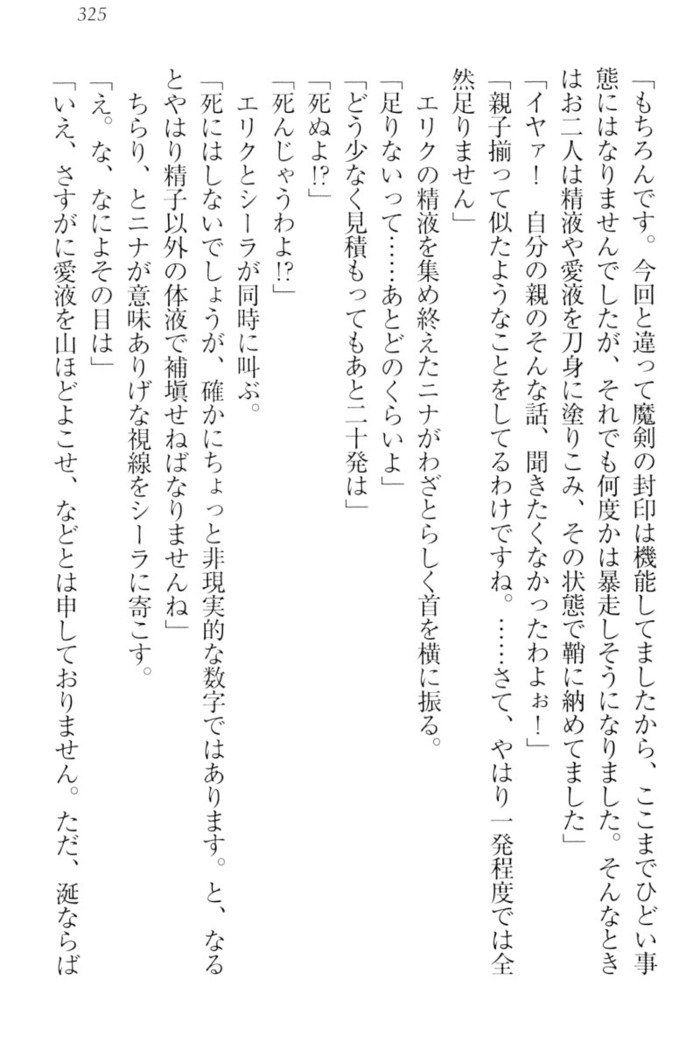 325
「もちろんです。今回と違って魔剣の封印は機能してましたから、ここまでひどい事
態にはなりませんでしたが、それでも何度かは暴走しそうになりました。そんなとき
はお二人は精液や愛液を刀身に塗りこみ、その状態で鞘に納めてました」
「イヤァ！　自分の親のそんな話、聞きたくなかったわよぉ！」
「親子揃って似たようなことをしてるわけですね。……さて、やはり一発程度では全
然足りません」
　エリクの精液を集め終えたニナがわざとらしく首を横に振る。
「足りないって……あとどのくらいよ」
「どう少なく見積もってもあと二十発は」
「死ぬよ!?」
「死んじゃうわよ!?」
　エリクとシーラが同時に叫ぶ。
「死にはしないでしょうが、確かにちょっと非現実的な数字ではあります。と、なる
とやはり精子以外の体液で補塡せねばなりませんね」
　ちらり、とニナが意味ありげな視線をシーラに寄こす。
「え。な、なによその目は」
「いえ、さすがに愛液を山ほどよこせ、などとは申しておりません。ただ、涎ならば